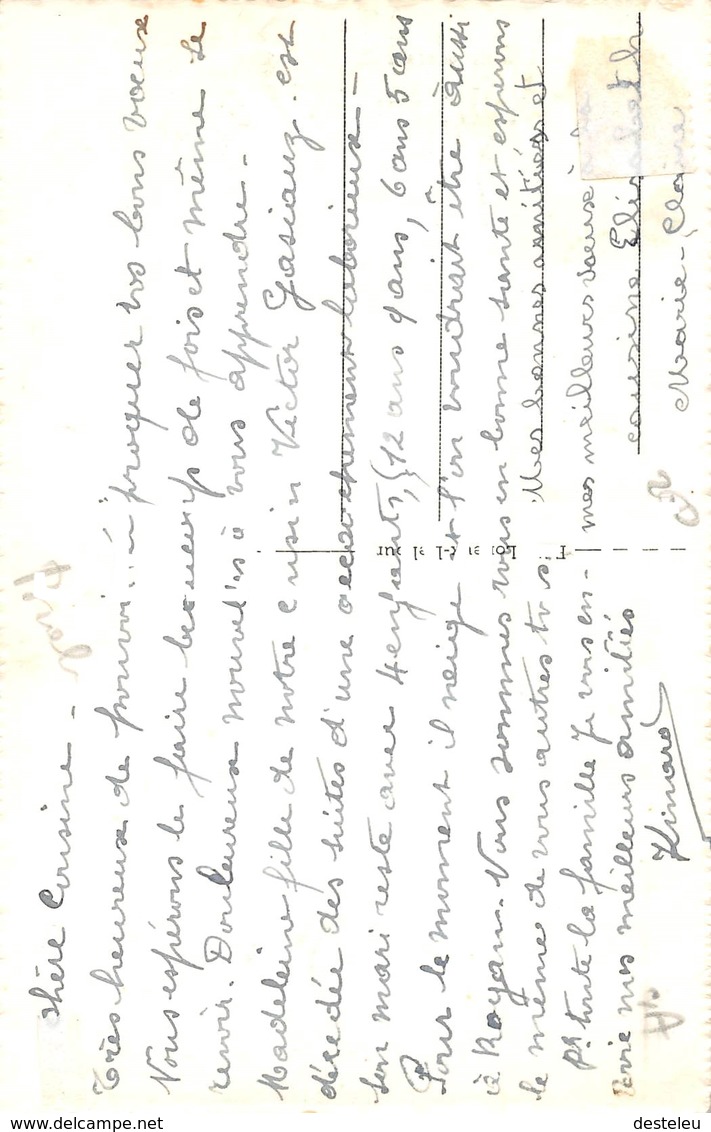 Chère Cousine -
Très heureux de pouvoir provoquer vos bons vœux
Nous espérons le faire beaucoup de fois et même se
revoir. Douleureux nouvelles à vous apprendre -
Madeleine fille de notre cousin Victor est
décédée des suites d'une accouchement laborieux -
son mari reste avec 4 enfants, 12 ans 9 ans, 6 ans 5 ans
Pour le moment il neige l'on voudrait être aussi
à Royan. Nous sommes tous en bonne santé et espérons
le même de vous autres tous
Mes bonnes amitiés et
Pr toute la famille je vous en-
mes meilleurs vœux à
voie mes meilleurs amitiés
cousine Elisabeth
Kinard
Marie-Claire
desteleu